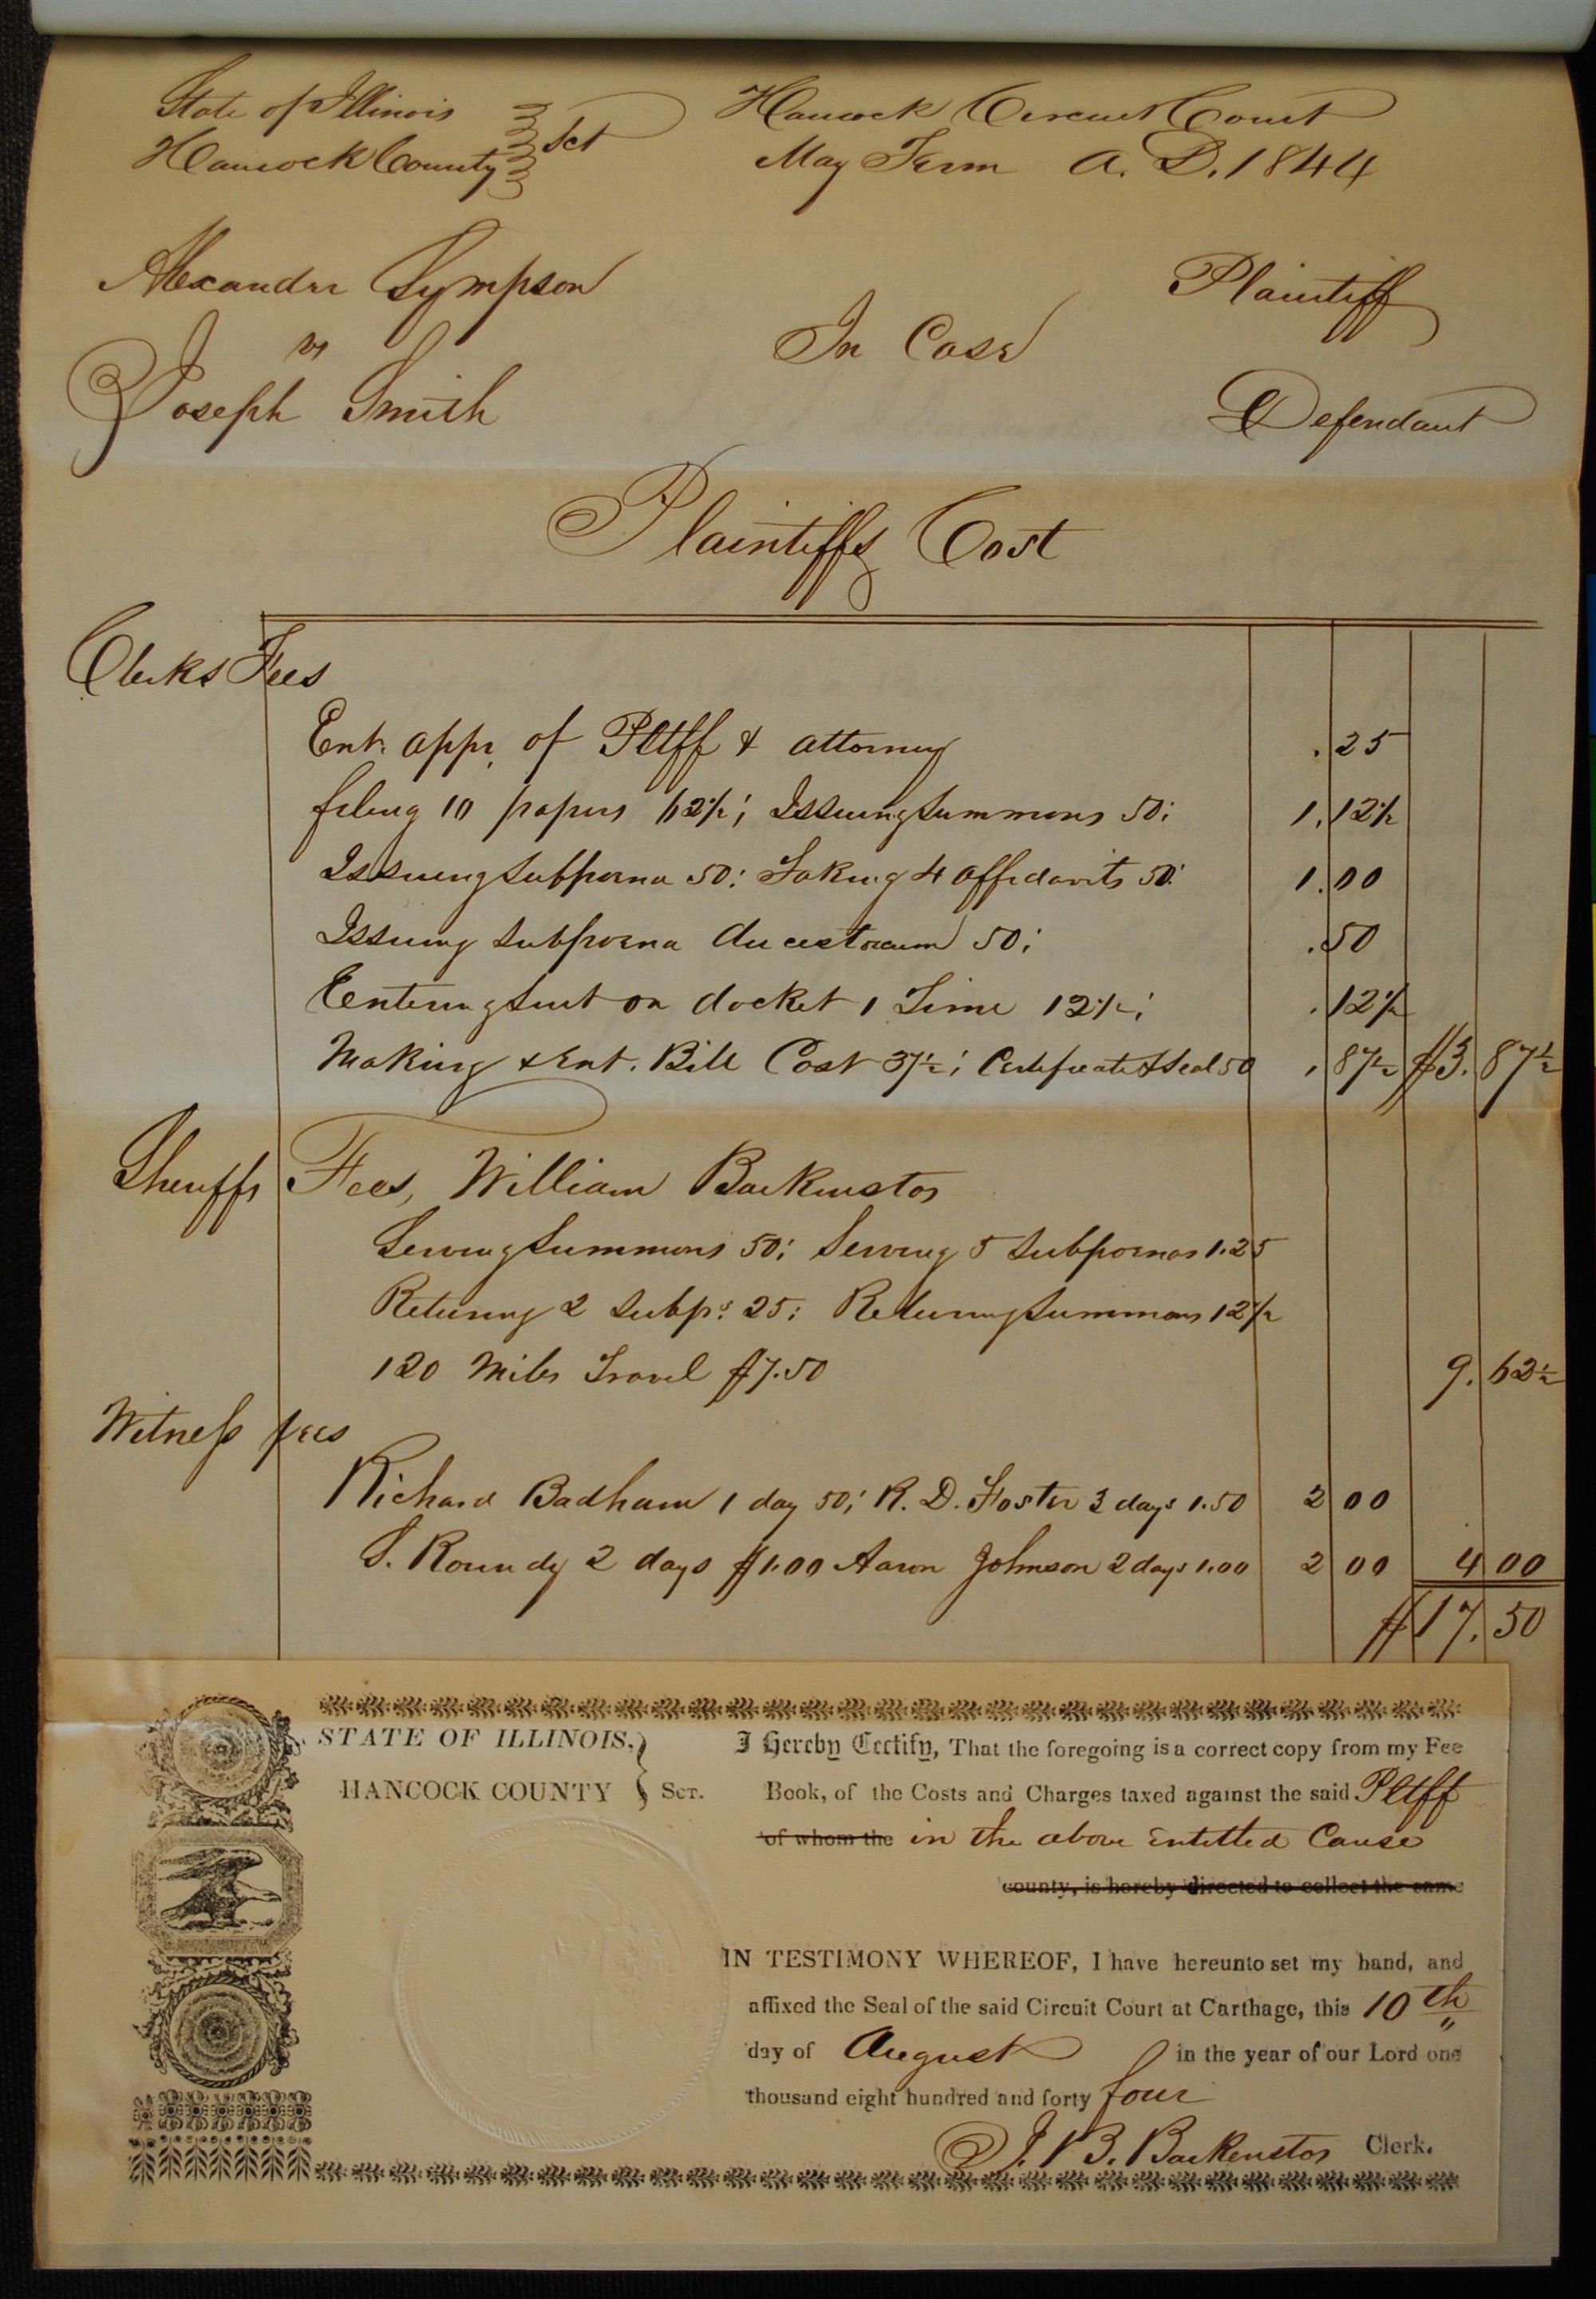 State of Illinois } Sct Hancock Circuit Court
Hancock County } May Term A. D. 1844
Alexander Sympson Plaintiff
vs In Case
Joseph Smith Defendant
Plaintiffs Cost
Clerks Fees
Ent. appr. of Pltff & attorney .25
filing 10 papers 62½; Issuing Summons 50; 1.12½
Issuing Subpoena 50; Taking 4 affidavits 50; 1.00
Issuing Subpoena duces tecum 50; .50
Entering Suit on docket 1 Time 12½; .12½
Making & Ent. Bill Cost 37½; Certificate & Seal 50 .87½ $3.87½
Sheriffs Fees, William Backenstos
Serving Summons 50; Serving 5 Subpoenas 1.25
Returning 2 Subps. 25; Returning Summons 12½
120 Miles Travel $7.50 9.62½
Witness fees
Richard Badham 1 day 50; R. D. Foster 3 days 1.50 2 00
S. Roundy 2 days $1.00 Aaron Johnson 2 days 1.00 2 00 4 00
$17.50
STATE OF ILLINOIS, } I Hereby Certify, That the foregoing is a correct copy from my Fee
HANCOCK COUNTY } Sct. Book, of the Costs and Charges taxed against the said Pltff
of whom the in the above entitled Cause
county, is hereby directed to collect the same
IN TESTIMONY WHEREOF, I have hereunto set my hand, and
affixed the Seal of the said Circuit Court at Carthage, this 10th
day of August in the year of our Lord one
thousand eight hundred and forty four
J. B. Backenstos Clerk.